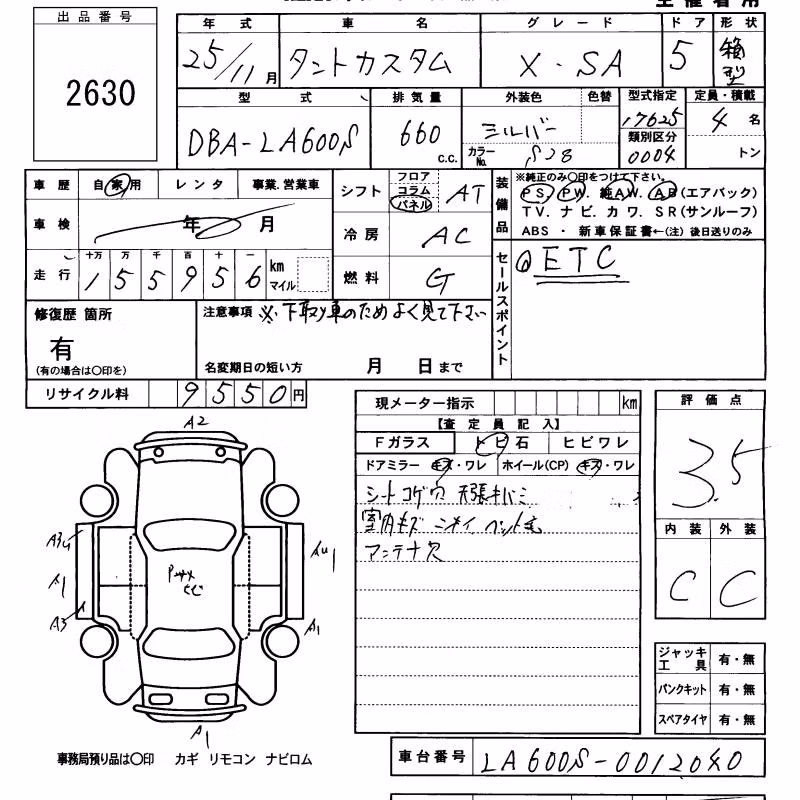 主催者用
出品番号
2630
年式 車名 グレード ドア 形状
25/11月 タントカスタム X・SA 5 箱型
型式 排気量 外装色 色替 型式指定 定員・積載
DBA-LA600S 660 c.c. シルバー 17625 4名
カラーNo. S28 類別区分 0004 トン
車歴 自家用 レンタ 事業.営業車
シフト フロア コラム パネル AT
装備品 ※純正のみ〇印をつけて下さい。
PS. PW. 純AW. AB(エアバック)
TV. ナビ. カワ. SR(サンルーフ)
ABS ・ 新車保証書←(注) 後日送りのみ
車検 年 月
冷房 AC
走行 十万 万 千 百 十 一
155956 km マイル
燃料 G
セールスポイント
ETC
修復歴 箇所
有
(有の場合は〇印を)
注意事項 ※下取り車のためよく見て下さい
名変期日の短い方 月 日まで
リサイクル料 9550円
現メーター指示 km
【査定員記入】
Fガラス トビ石 ヒビワレ
ドアミラー キズ・ワレ ホイール(CP) キズ・ワレ
シートコゲ穴 天張キバミ
室内キズ ニオイ ペット毛
アンテナ穴
評価点
3.5
内装 外装
C C
A2
A1
A3
A1
A1
ジャッキ工具 有・無
パンクキット 有・無
スペアタイヤ 有・無
事務局預り品は〇印 カギ リモコン ナビロム
車台番号 LA600S-0012040